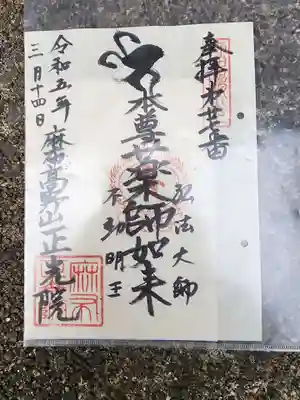 奉拝
本尊薬師如来
弘法大師
不動明王
令和五年
三月十四日
麻布高野山正光院